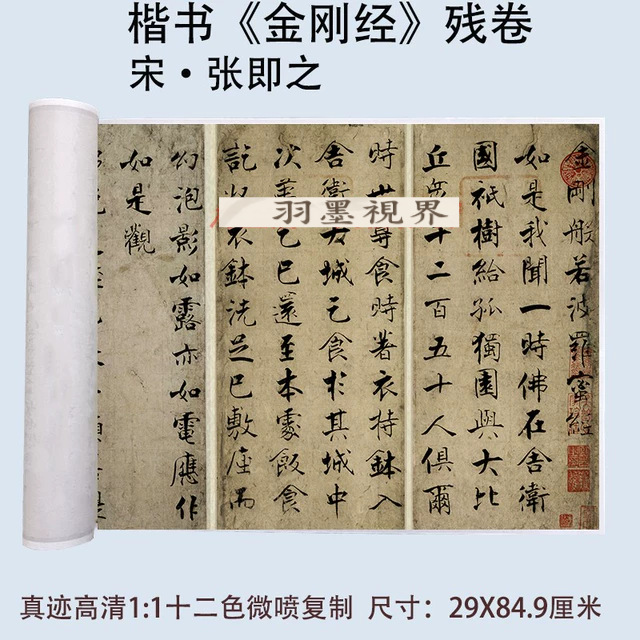 楷书《金刚经》残卷
宋·张即之
羽墨視界
金剛般若波羅蜜經
如是我聞一時佛在舍衛
國祇樹給孤獨園與大比
丘 十二百五十人俱爾
時世尊食時著衣持鉢入
舍衛 城乞食於其城中
次 乞已還至本處飯食
訖 衣鉢洗足已敷座而
幻泡影如露亦如電應作
如是觀
真迹高清1:1十二色微喷复制 尺寸：29X84.9厘米